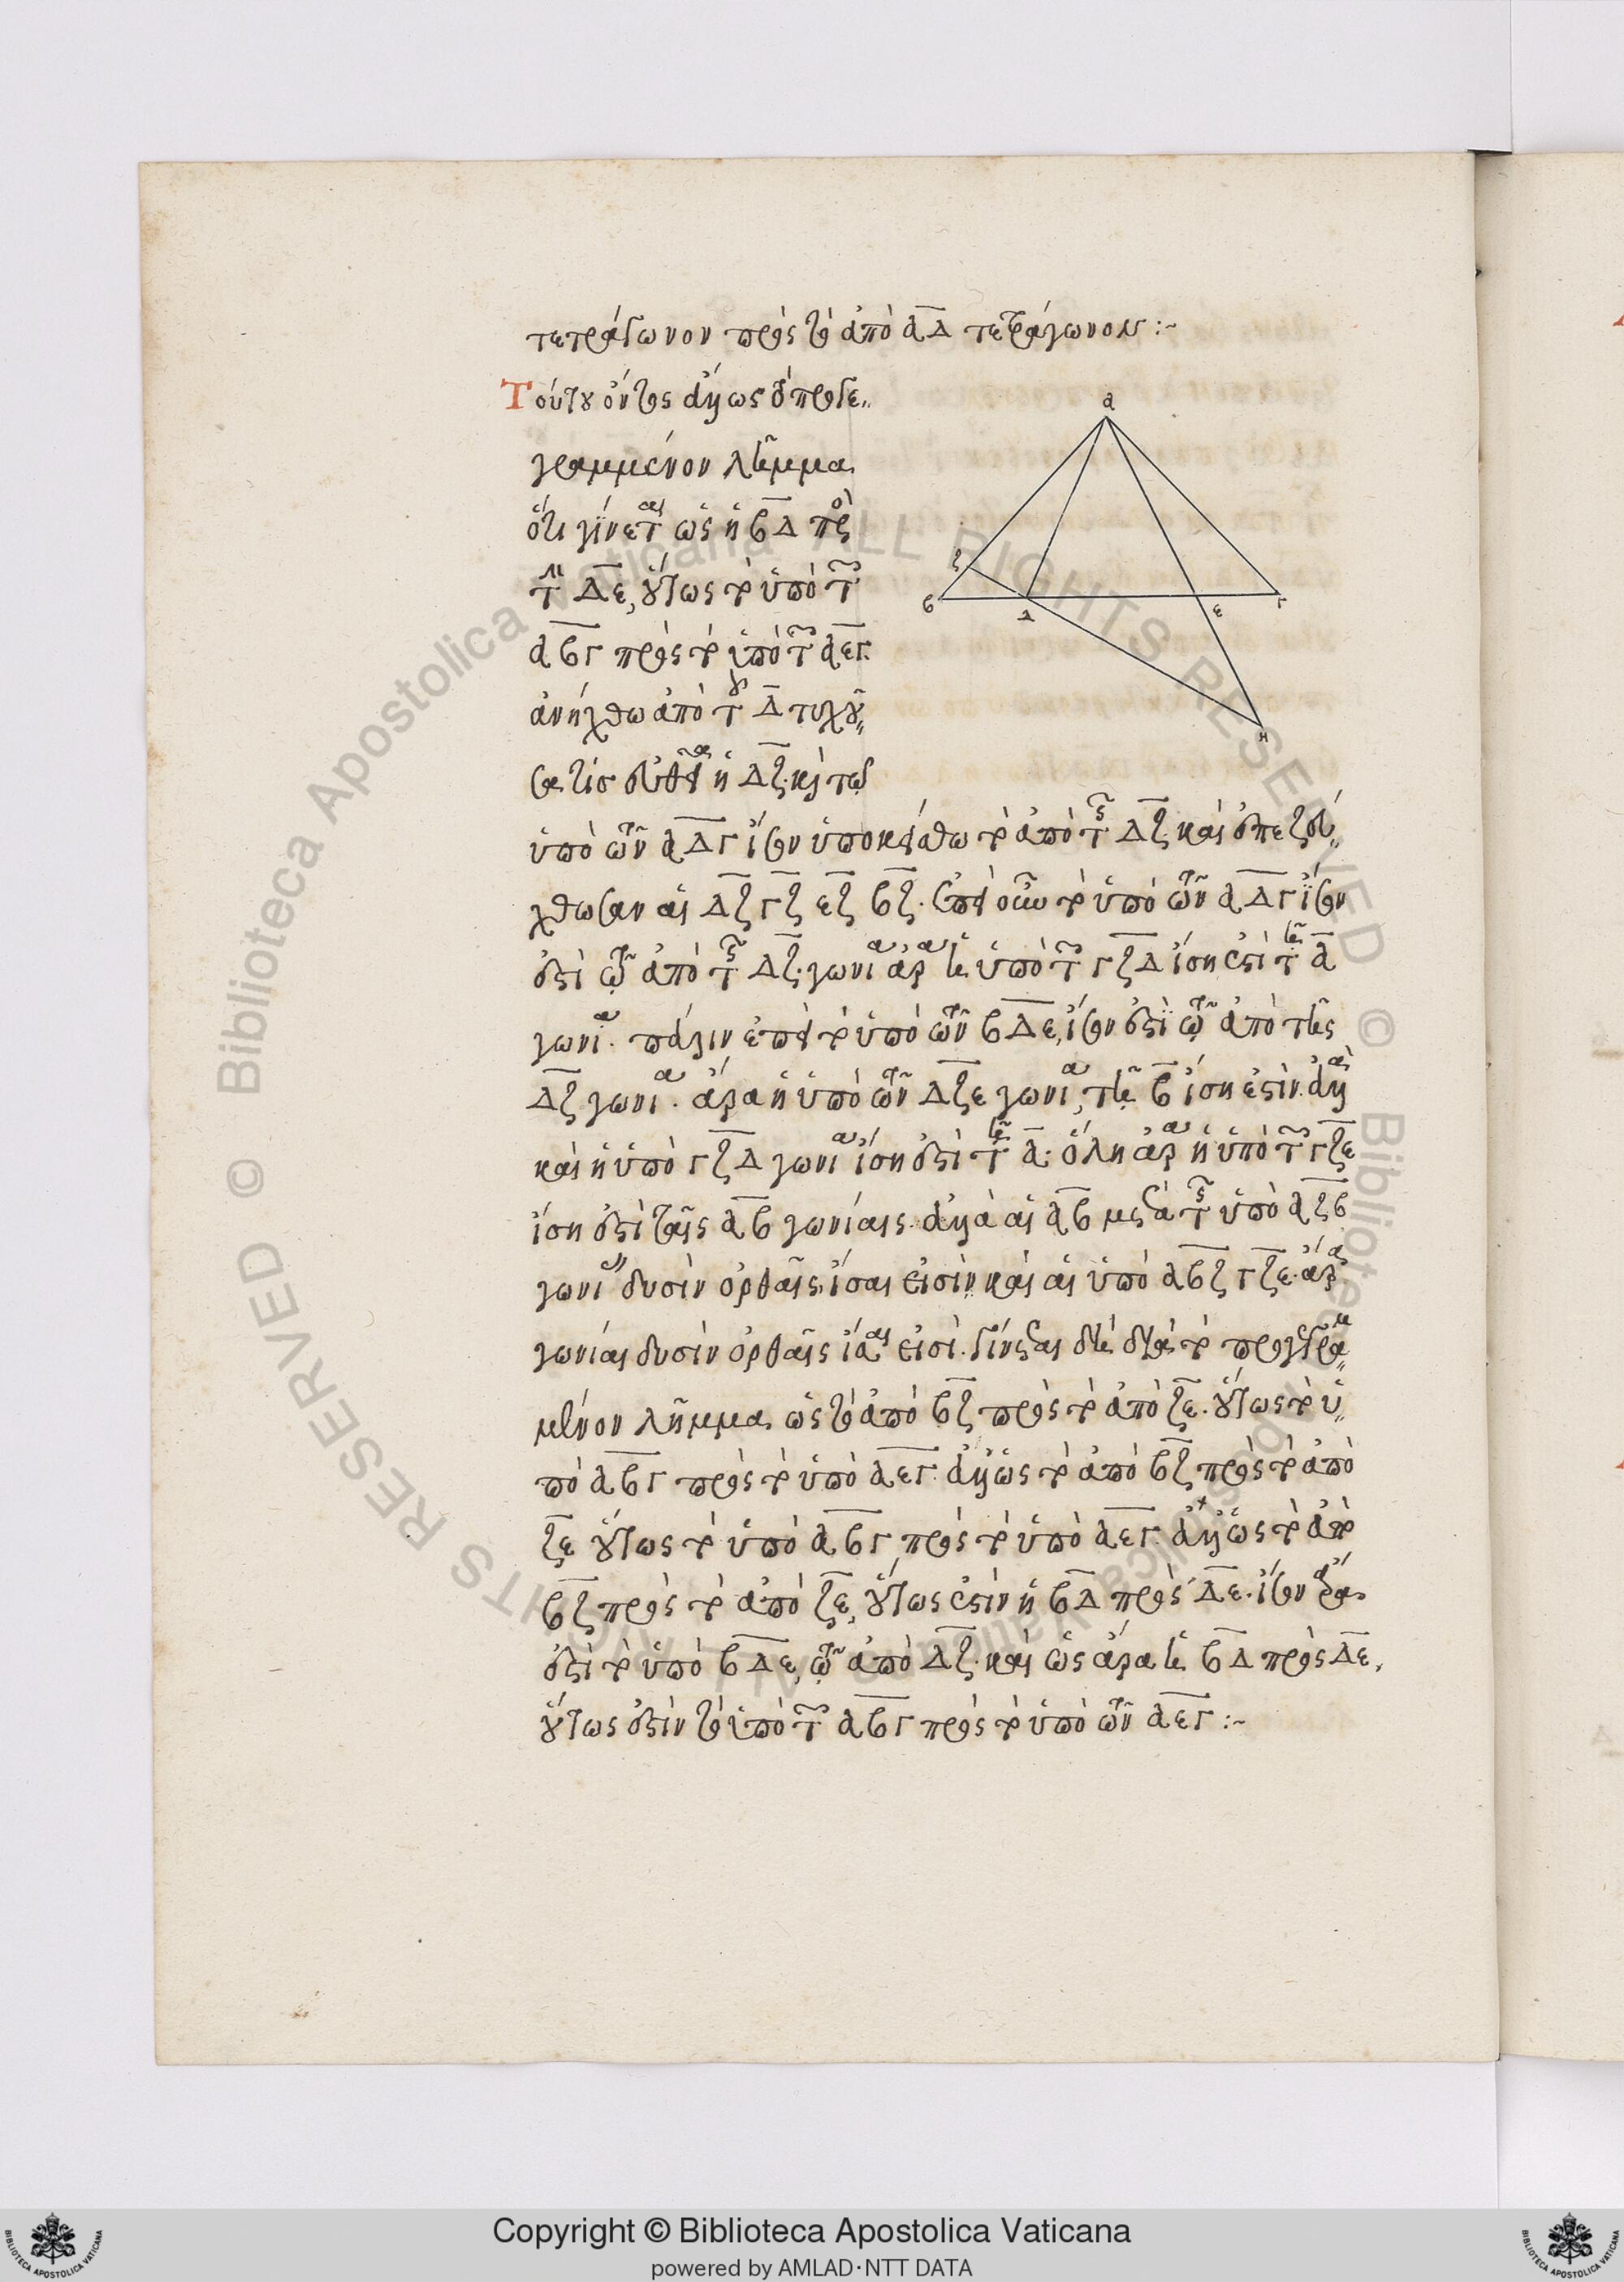 τετράγωνον πρὸς τὸ ἀπὸ ΑΔ τετράγωνον :~
Τούτου ὄντος ἄλλως τὸ προγε
γραμμένον λῆμμα
ὅτι γίνεται ὡς ἡ ΒΔ πρὸς
τὴν ΔΕ, οὕτως τὸ ὑπὸ τῶν
ΑΒΓ πρὸς τὸ ὑπὸ τῶν ΑΕΓ.
ἀνήχθω ἀπὸ τοῦ Δ τυχοῦ
σα τις εὐθεῖα ἡ ΔΖ. καὶ τῷ
ὑπὸ τῶν ΑΔΓ ἴσον ὑποκείσθω τὸ ἀπὸ τῆς ΔΖ. καὶ ἐπεζεύ
χθωσαν αἱ ΔΖ ΓΖ ΕΖ ΒΖ. ἐπεὶ οὖν τὸ ὑπὸ τῶν ΑΔΓ ἴσον
ἐστὶ τῷ ἀπὸ τῆς ΔΖ. γωνία ἄρα ἡ ὑπὸ τῶν ΓΖΔ ἴση ἐστὶ τῇ Α
γωνίᾳ. πάλιν ἐπεὶ τὸ ὑπὸ τῶν ΒΔΕ, ἴσον ἐστὶ τῷ ἀπὸ τῆς
ΔΖ γωνία. ἄρα ἡ ὑπὸ τῶν ΔΖΕ γωνία, τῇ Β ἴση ἐστίν. ἀλλὰ
καὶ ἡ ὑπὸ ΓΖΔ γωνία ἴση ἐστὶ τῇ Α. ὅλη ἄρα ἡ ὑπὸ τῶν ΓΖΕ
ἴση ἐστὶ ταῖς ΑΒ γωνίαις. ἀλλὰ αἱ ΑΒ μετὰ τῆς ὑπὸ ΑΖΒ
γωνίας δυσὶν ὀρθαῖς ἴσαι εἰσίν. καὶ αἱ ὑπὸ ΑΒΖ ΓΖΕ. ἄρα
γωνίαι δυσὶν ὀρθαῖς ἴσαι εἰσί. γίνεται δὴ διὰ τὸ προγεγραμ
μένον λῆμμα ὡς τὸ ἀπὸ ΒΖ πρὸς τὸ ἀπὸ ΖΕ. οὕτως τὸ ὑ
πὸ ΑΒΓ πρὸς τὸ ὑπὸ ΑΕΓ. ἀλλ' ὡς τὸ ἀπὸ ΒΖ πρὸς τὸ ἀπὸ
ΖΕ οὕτως τὸ ὑπὸ ΑΒΓ πρὸς τὸ ὑπὸ ΑΕΓ. ἀλλ' ὡς τὸ ἀπὸ
ΒΖ πρὸς τὸ ἀπὸ ΖΕ, οὕτως ἐστὶν ἡ ΒΔ πρὸς ΔΕ. ἴσον ἄρα
ἐστὶ τὸ ὑπὸ ΒΔΕ, τῷ ἀπὸ ΔΖ. καὶ ὡς ἄρα ἡ ΒΔ πρὸς ΔΕ,
οὕτως ἐστὶν τὸ ὑπὸ τῶν ΑΒΓ πρὸς τὸ ὑπὸ τῶν ΑΕΓ :~
α
ζ
β
Δ
ε
Γ
Η
Copyright © Biblioteca Apostolica Vaticana
powered by AMLAD·NTT DATA
© Biblioteca Apostolica Vaticana ALL RIGHTS RESERVED